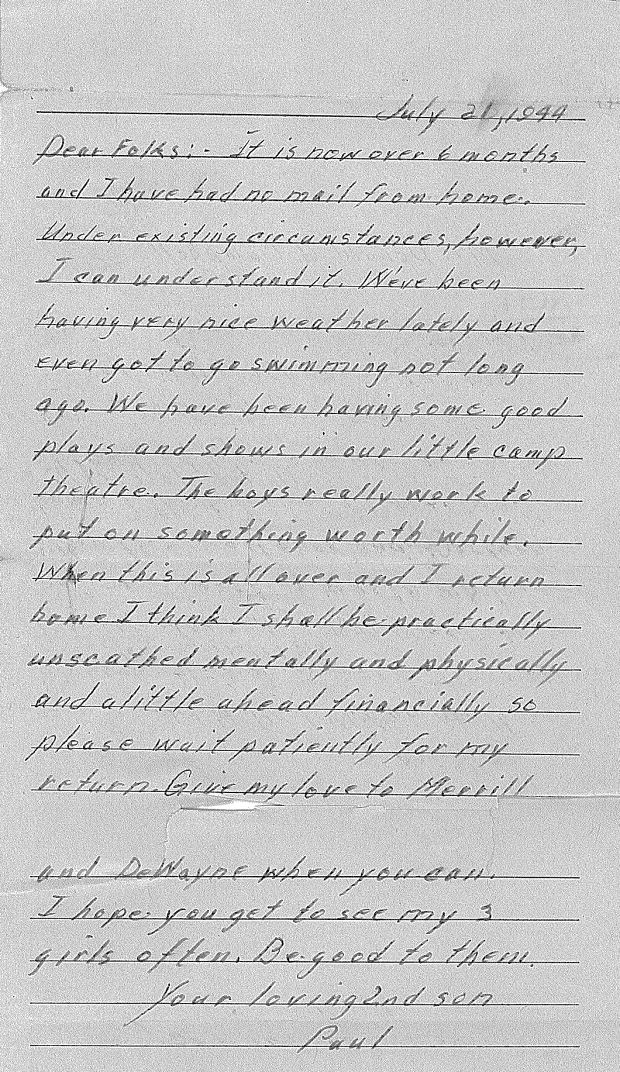 July 21, 1944
Dear Folks: - It is now over 6 months
and I have had no mail from home.
Under existing circumstances, however,
I can understand it. We've been
having very nice weather lately and
even got to go swimming not long
ago. We have been having some good
plays and shows in our little camp
theatre. The boys really work to
put on something worth while.
When this is all over and I return
home I think I shall be practically
unscathed mentally and physically
and a little ahead financially so
please wait patiently for my
return. Give my love to Merrill
and DeWayne when you can.
I hope you get to see my 3
girls often. Be good to them.
Your loving 2nd son
Paul